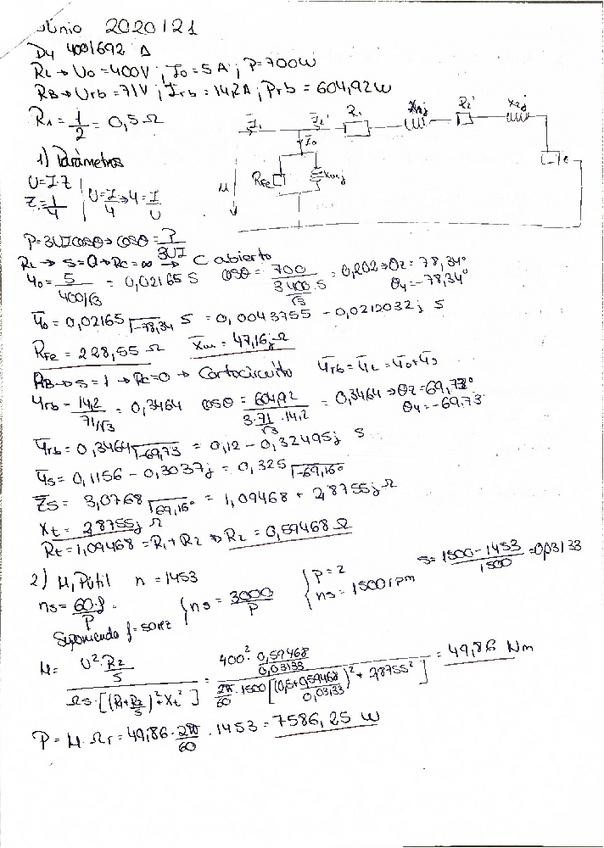 Junio 2020/21
Dy 400/692 Δ
RL → U0 = 400V ; I0 = 5 A ; P = 700W
RB → Urb = 71V ; Irb = 14,2A ; Prb = 604,92W
R1 = 1/2 = 0,5 Ω
I1 I2' R1 X1j R2' X2j
I0
RFe Xuj Rc
U
1) Parámetros
U = I·Z
Z = 1/Y U = I/Y → Y = I/U
P = 3UI cosθ → cosθ = P/3UI
RL → S = 0 → Rc = ∞ → C abierto
Y0 = 5/(400/√3) = 0,02165 S cosθ = 700/(3·400/√3·5) = 0,202 → θz = 78,34°
θY = -78,34°
Y0 = 0,02165 |-78,34 S = 0,0043755 - 0,0212032j S
RFe = 228,55 Ω Xu = 47,16j Ω
RB → S = 1 → Rc = 0 → Cortocircuito Yrb = Yt = Y0 + Ys
Yrb = 14,2/(71/√3) = 0,3464 cosθ = 604,92/(3·71/√3·14,2) = 0,3464 → θz = 69,73°
θY = -69,73
Yrb = 0,3464 |-69,73 = 0,12 - 0,32495j S
Ys = 0,1156 - 0,3037j = 0,325 |-69,16°
Zs = 3,0768 |69,16° = 1,09468 + 2,8755j Ω
Xt = 2,8755j Ω
Rt = 1,09468 = R1 + R2 → R2 = 0,59468 Ω
2) M, Pútil n = 1453
ns = 60·f/P { ns = 3000/P { P = 2 ns = 1500 rpm S = (1500 - 1453)/1500 = 0,03133
Suponiendo f = 50Hz
M = (U²·R2/S)/(Ωs·[(R1+R2/S)²+Xt²]) = (400²·0,59468/0,03133)/(2π/60·1500[(0,5+0,59468/0,03133)²+2,8755²]) = 49,86 Nm
P = M·Ωr = 49,86·2π/60·1453 = 7586,25 W